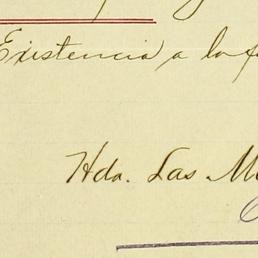 Existencia a la
Hda. Las